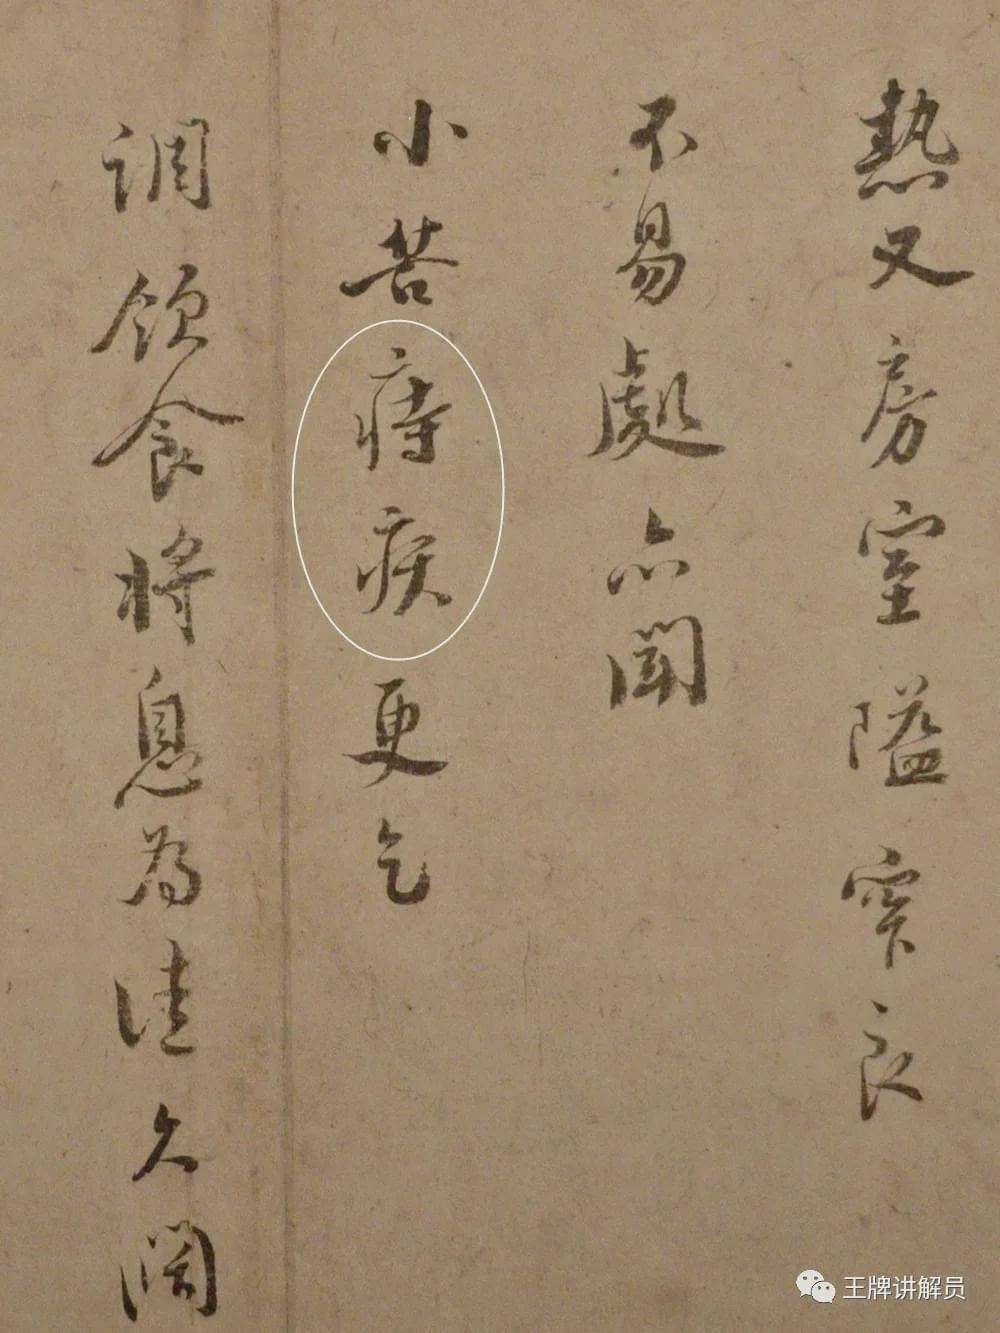 熱又房室隘窄良
不易處亦聞
小苦痔疾更乞
調飲食將息為佳久闊
王牌讲解员